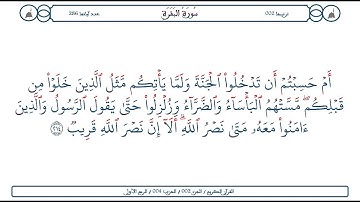 ترتيبها 002 سُورَةُ البَقَرَةِ عدد آياتها 286
أَمۡ حَسِبۡتُمۡ أَن تَدۡخُلُواْ ٱلۡجَنَّةَ وَلَمَّا يَأۡتِكُم مَّثَلُ ٱلَّذِينَ خَلَوۡاْ مِن
قَبۡلِكُمۖ مَّسَّتۡهُمُ ٱلۡبَأۡسَآءُ وَٱلضَّرَّآءُ وَزُلۡزِلُواْ حَتَّىٰ يَقُولَ ٱلرَّسُولُ وَٱلَّذِينَ
ءَامَنُواْ مَعَهُۥ مَتَىٰ نَصۡرُ ٱللَّهِۗ أَلَآ إِنَّ نَصۡرَ ٱللَّهِ قَرِيبٞ ٢١٤
القرآن الكريم / الجزء 002 / الحزب 004 / الربع الأول